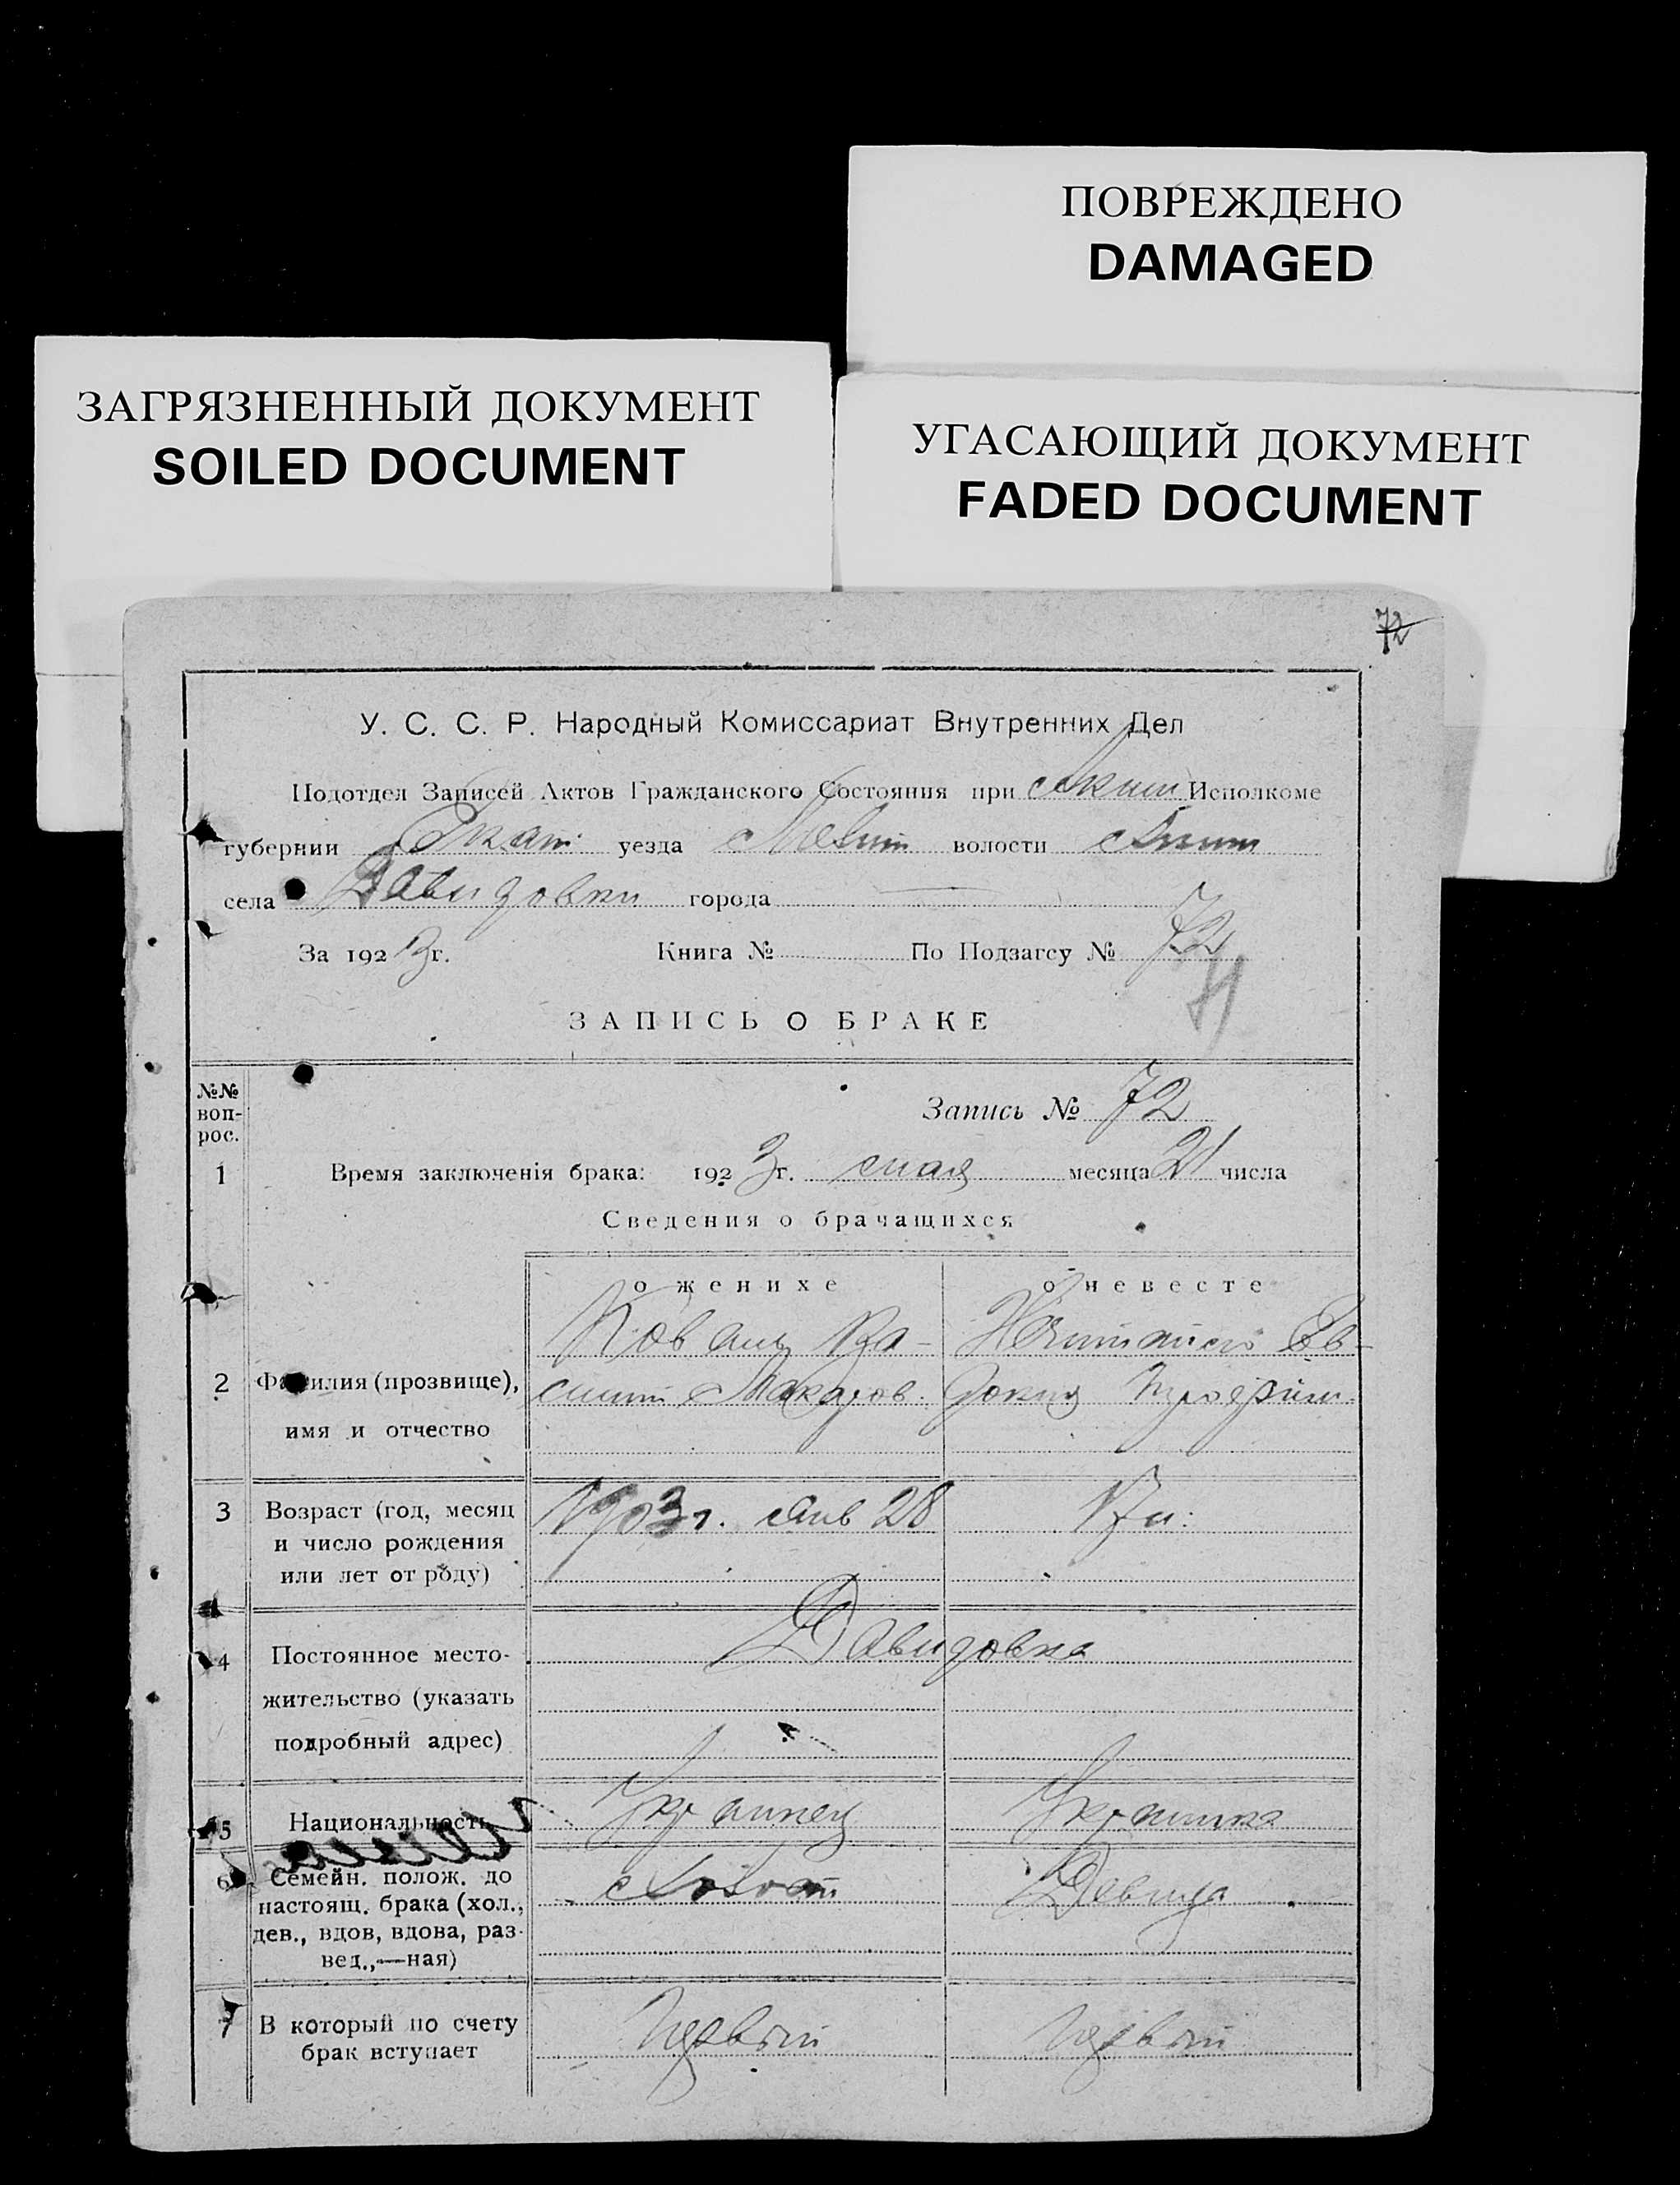 ПОВРЕЖДЕНО
DAMAGED
ЗАГРЯЗНЕННЫЙ ДОКУМЕНТ
SOILED DOCUMENT
УГАСАЮЩИЙ ДОКУМЕНТ
FADED DOCUMENT
72
У. С. С. Р. Народный Комиссариат Внутренних Дел
Подотдел Записей Актов Гражданского Состояния при Аким Исполкоме
губернии Екат. уезда Мелит волости Аким
села Давидовки города
За 1923 г. Книга № По Подзагсу № 72
ЗАПИСЬ О БРАКЕ
№№ воп-рос.
Запись № 72
1 Время заключенія брака: 1923 г. мая месяца 21 числа
Сведения о брачащихся
о женихе о невесте
2 Фамилия (прозвище),
имя и отчество
Макаров.
3 Возраст (год, месяц
и число рождения
или лет от роду)
1903 г. Янв 28
17 л.
4 Постоянное место-
жительство (указать
подробный адрес)
Давидовка
5 Национальность
Украинец Украинка
6 Семейн. полож. до
настоящ. брака (хол.,
дев., вдов, вдова, раз-
вед.,—ная)
Холост Девица
7 В который по счету
брак вступает
Первый Первый